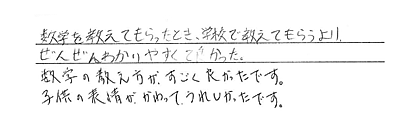 数学を教えてもらったとき、学校で教えてもらうより、
ぜんぜんわかりやすくてよかった。
数学の教え方が、すごく良かったです。
子供の表情が、かわって、うれしかったです。